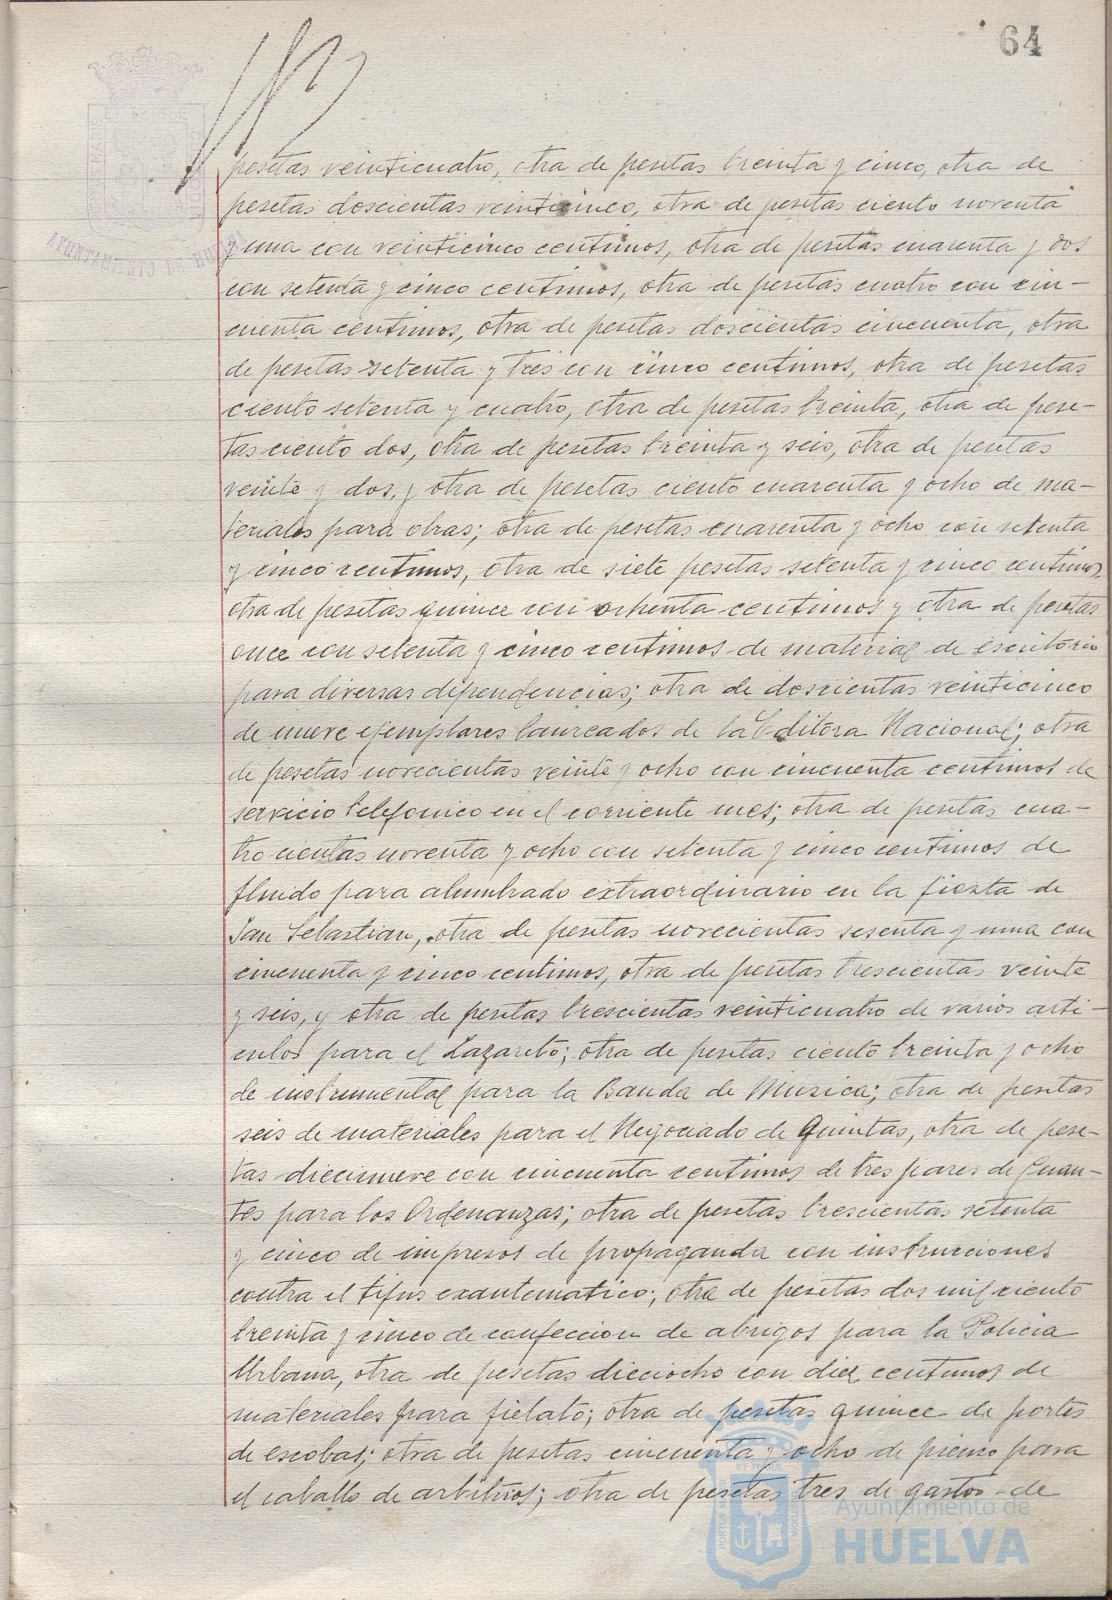 64
pesetas veinticuatro, otra de pesetas treinta y cinco, otra de
pesetas doscientas veinticinco, otra de pesetas ciento noventa
y una con veinticinco centimos, otra de pesetas cuarenta y dos
con setenta y cinco centimos, otra de pesetas cuatro con cin-
cuenta centimos, otra de pesetas doscientas cincuenta, otra
de pesetas setenta y tres con cinco centimos, otra de pesetas
ciento setenta y cuatro, otra de pesetas treinta, otra de pese-
tas ciento dos, otra de pesetas treinta y seis, otra de pesetas
veinte y dos, y otra de pesetas ciento cuarenta y ocho de ma-
teriales para obras; otra de pesetas cuarenta y ocho con setenta
y cinco centimos, otra de siete pesetas setenta y cinco centimos,
otra de pesetas quince con ochenta centimos y otra de pesetas
once con setenta y cinco centimos de material de escritorio
para diversas dependencias; otra de doscientas veinticinco
de nueve ejemplares laureados de la Editora Nacional; otra
de pesetas novecientas veinte y ocho con cincuenta centimos de
servicio telefonico en el corriente mes; otra de pesetas cua-
trocientas noventa y ocho con setenta y cinco centimos de
fluido para alumbrado extraordinario en la fiesta de
San Sebastian, otra de pesetas novecientas sesenta y una con
cincuenta y cinco centimos, otra de pesetas trescientas veinte
y seis, y otra de pesetas trescientas veinticuatro de varios arti-
culos para el Lazareto; otra de pesetas ciento treinta y ocho
de instrumental para la Banda de Musica; otra de pesetas
seis de materiales para el Negociado de Quintas, otra de pese-
tas diecinueve con cincuenta centimos de tres pares de guan-
tes para los Ordenanzas; otra de pesetas trescientas setenta
y cinco de impresos de propaganda con instrucciones
contra el tifus exantematico; otra de pesetas dos mil ciento
treinta y cinco de confeccion de abrigos para la Policia
Urbana, otra de pesetas dieciocho con diez centimos de
materiales para fielato; otra de pesetas quince de portes
de escobas; otra de pesetas cincuenta y ocho de pienso para
el caballo de arbitrios; otra de pesetas tres de gastos de
AYUNTAMIENTO DE HUELVA
Ayuntamiento de
HUELVA